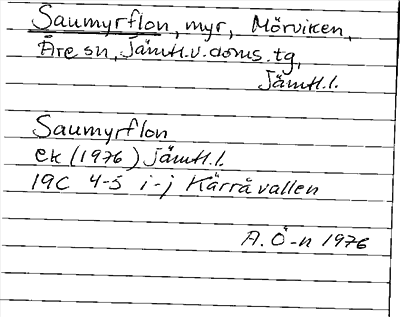 Saumyrflon, myr, Mörviken,
Åre sn, Jämtl.v.doms.tg,
Jämtl.l.
Saumyrflon
ek (1976) Jämtl.l.
19C 4-5 i-j Kärråvallen
A.Ö-n 1976